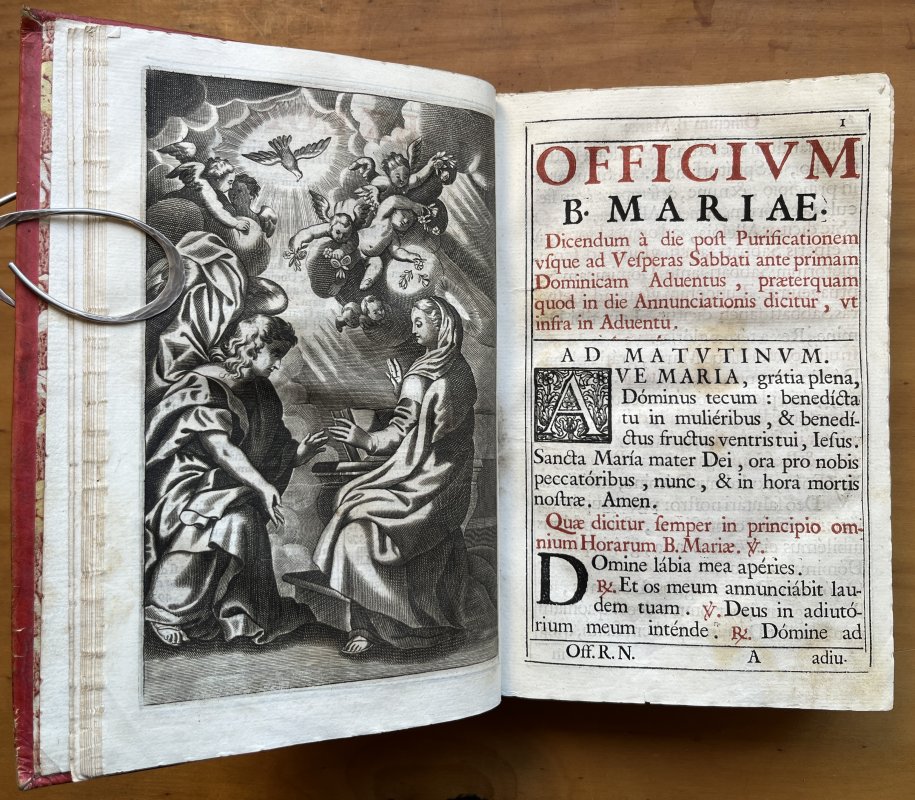 1
OFFICIVM
B. MARIAE.
Dicendum à die post Purificationem
vsque ad Vesperas Sabbati ante primam
Dominicam Aduentus, præterquam
quod in die Annunciationis dicitur, vt
infra in Aduentu.
AD MATVTINVM.
AVE MARIA, grátia plena,
Dóminus tecum : benedícta
tu in muliéribus, & benedí-
ctus fructus ventris tui, Iesus.
Sancta María mater Dei, ora pro nobis
peccatóribus, nunc, & in hora mortis
nostræ. Amen.
Quæ dicitur semper in principio om-
nium Horarum B. Mariæ. ℣.
DOmine lábia mea apéries.
℟. Et os meum annunciábit lau-
dem tuam. ℣. Deus in adiutó-
rium meum inténde. ℟. Dómine ad
Off. R. N. A adiu-